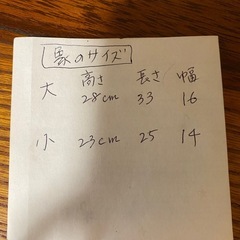 象のサイズ
大 高さ 長さ 幅
28cm 33 16
小 23cm 25 14